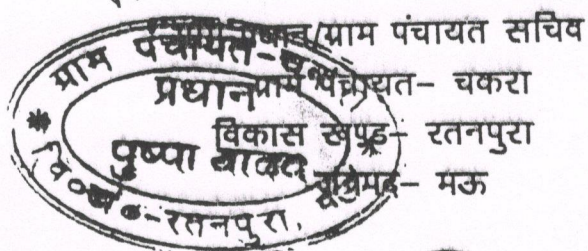 प्रधान/ग्राम पंचायत सचिव
ग्राम पंचायत- चकरा
विकास खण्ड- रतनपुरा
मऊ
ग्राम पंचायत-
प्रधान
पुष्पा यादव
वि०ख०-रतनपुरा,